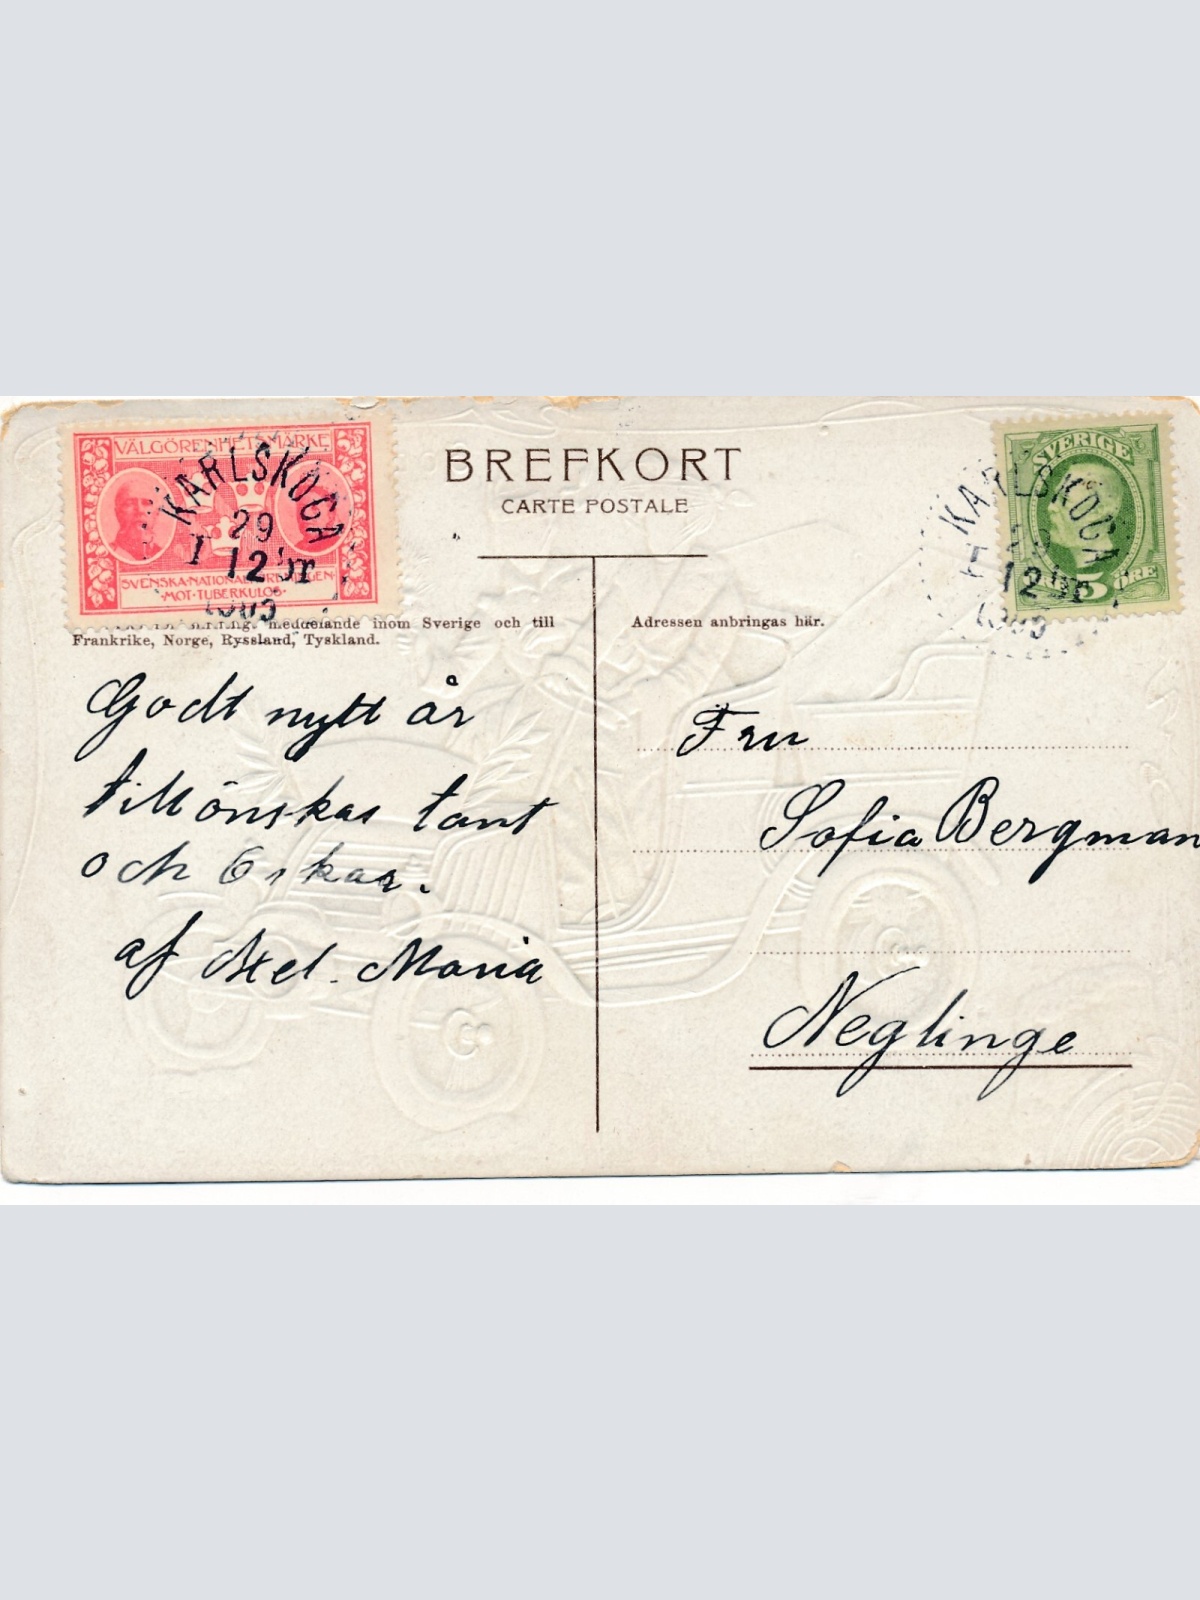 VÄLGÖRENHETSMÄRKE
SVENSKA·NATIONALFÖRENINGEN·
·MOT·TUBERKULOS·
KARLSKOGA
29
12
BREFKORT
CARTE POSTALE
SVERIGE
5 ÖRE
KARLSKOGA
29
12
meddelande inom Sverige och till
Frankrike, Norge, Ryssland, Tyskland.
Adressen anbringas här.
Godt nytt år
tillönskas tant
och Oskar.
af Axel. Maria
Fru
Sofia Bergman
Neglinge